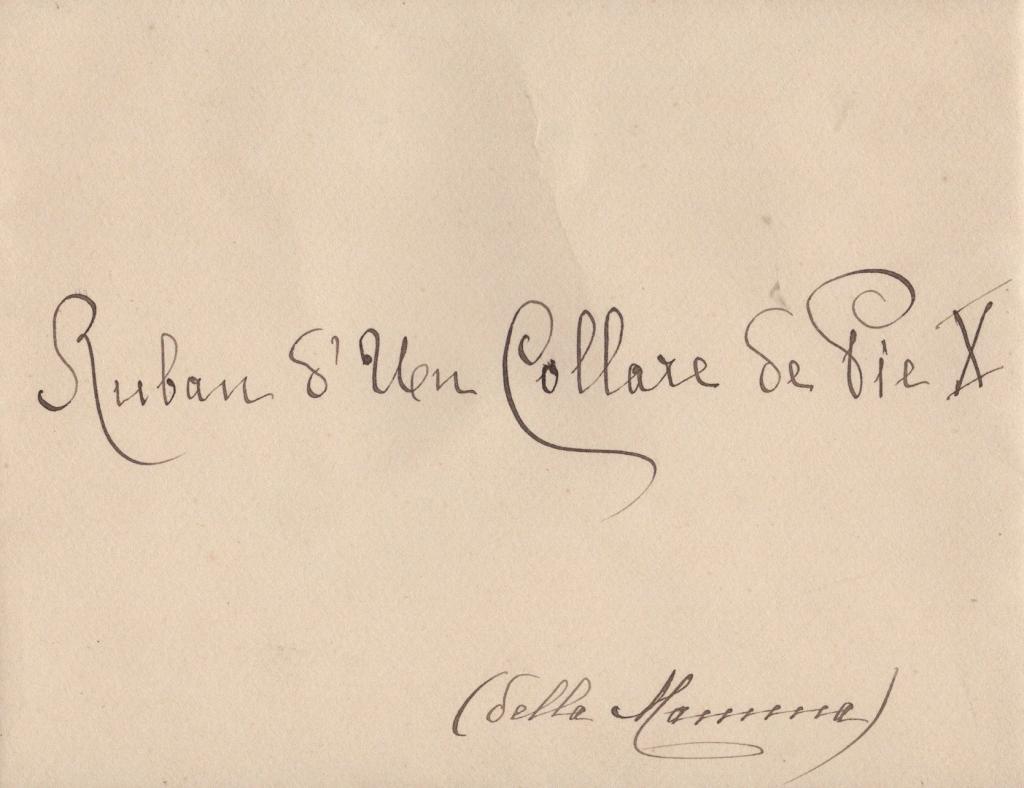 Ruban d'Un Collare de Pie X
(della Mamma)